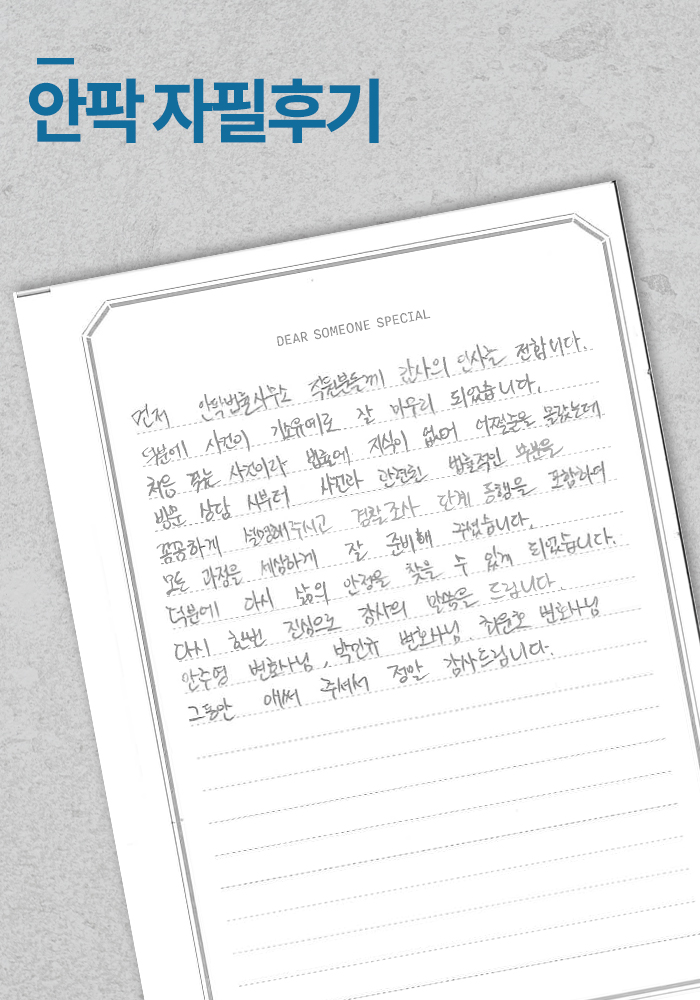 안팍 자필후기
DEAR SOMEONE SPECIAL
먼저 안팍법률사무소 직원분들께 감사의 인사를 전합니다.
덕분에 사건이 기소유예로 잘 마무리 되었습니다.
처음 겪는 사건이라 법률에 지식이 없어 어쩔줄을 몰랐는데
방문 상담 시부터 사건과 관련된 법률적인 부분을
꼼꼼하게 설명해주시고 경찰조사 단계 동행을 포함하여
모든 과정을 세심하게 잘 준비해 주셨습니다.
덕분에 다시 삶의 안정을 찾을 수 있게 되었습니다.
다시 한번 진심으로 감사의 말씀을 드립니다.
안주영 변호사님, 박민규 변호사님, 최윤호 변호사님
그동안 애써 주셔서 정말 감사드립니다.